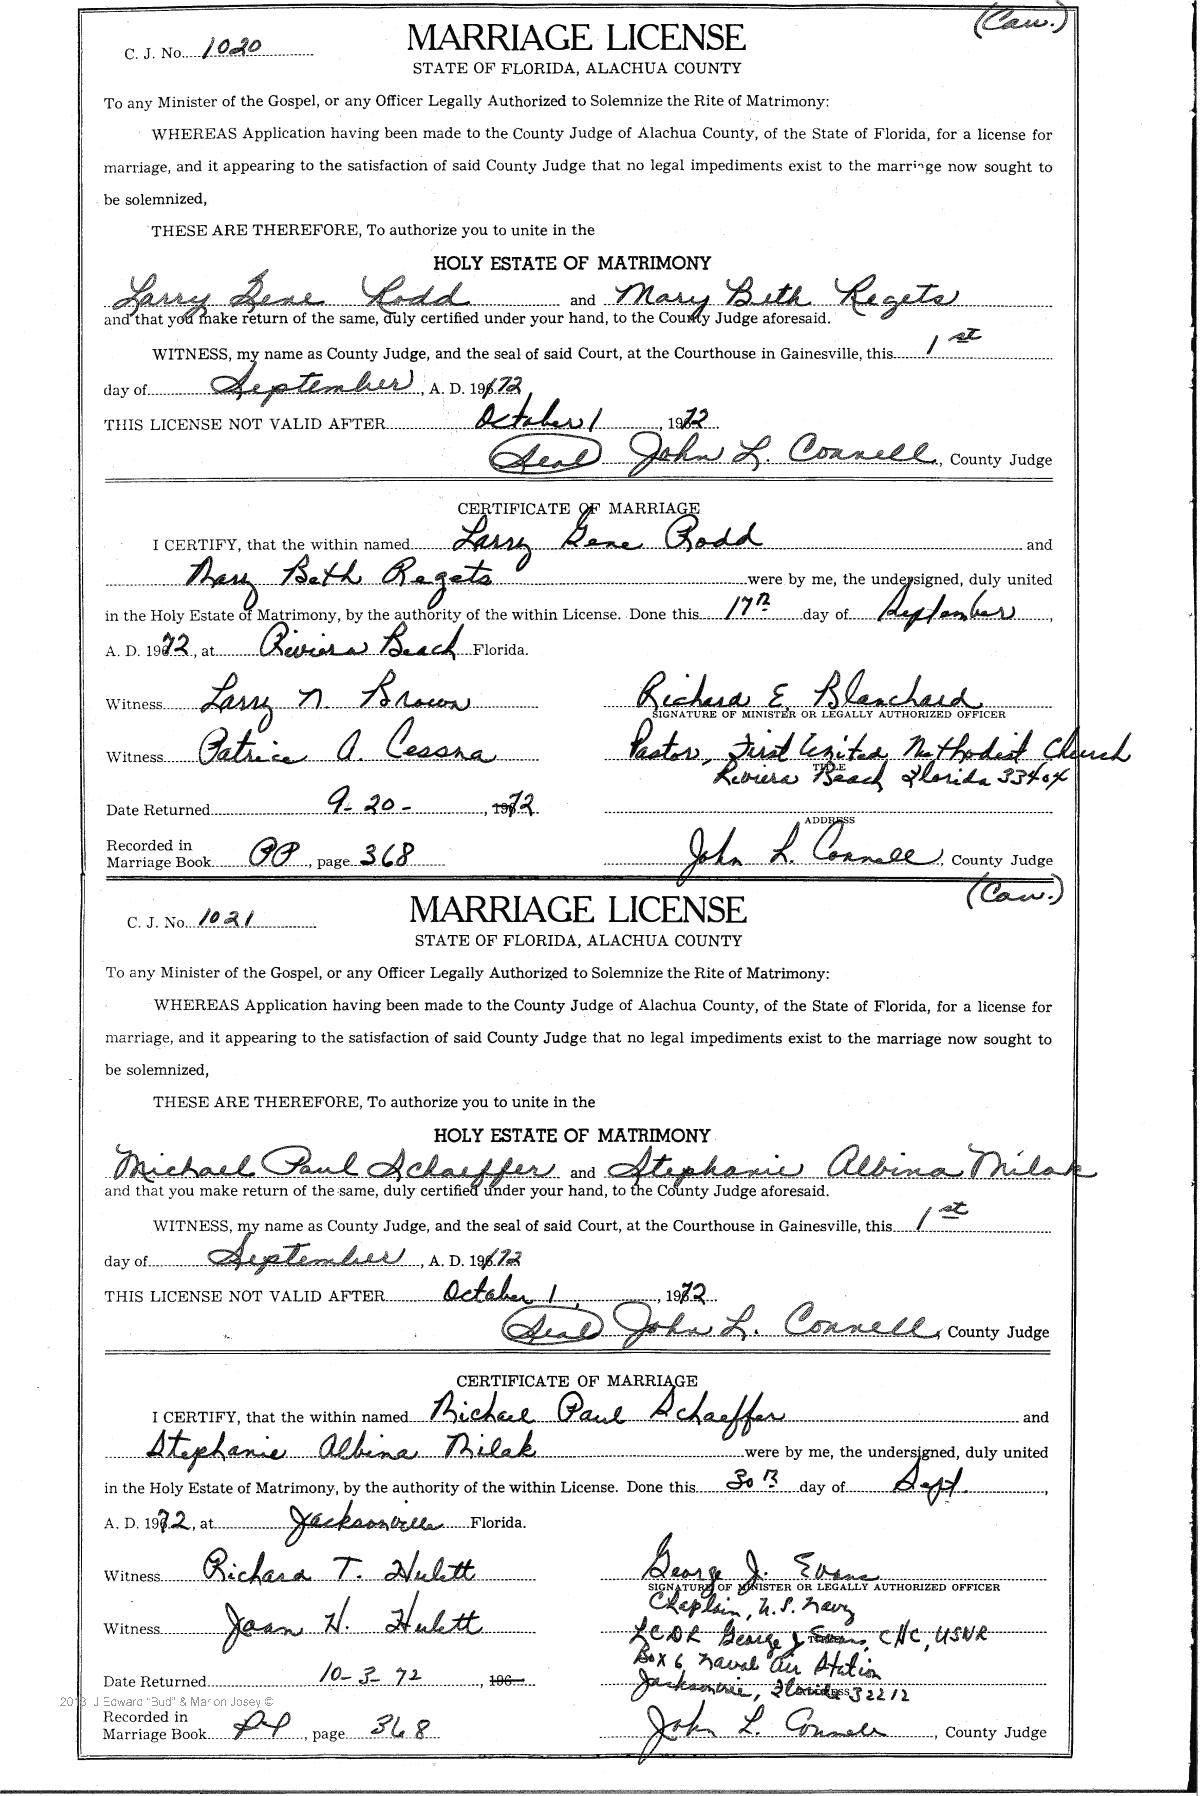 (Cau.)
C. J. No. 1020 MARRIAGE LICENSE
STATE OF FLORIDA, ALACHUA COUNTY
To any Minister of the Gospel, or any Officer Legally Authorized to Solemnize the Rite of Matrimony:
WHEREAS Application having been made to the County Judge of Alachua County, of the State of Florida, for a license for
marriage, and it appearing to the satisfaction of said County Judge that no legal impediments exist to the marriage now sought to
be solemnized,
THESE ARE THEREFORE, To authorize you to unite in the
HOLY ESTATE OF MATRIMONY
Larry Gene Rodd and Mary Beth Regets
and that you make return of the same, duly certified under your hand, to the County Judge aforesaid.
WITNESS, my name as County Judge, and the seal of said Court, at the Courthouse in Gainesville, this 1st
day of September, A. D. 1972
THIS LICENSE NOT VALID AFTER October 1, 1972
(Seal) John L. Connell, County Judge
CERTIFICATE OF MARRIAGE
I CERTIFY, that the within named Larry Gene Rodd and
Mary Beth Regets were by me, the undersigned, duly united
in the Holy Estate of Matrimony, by the authority of the within License. Done this 17th day of September,
A. D. 1972, at Riviera Beach Florida.
Witness Larry N. Brown Richard E. Blanchard
SIGNATURE OF MINISTER OR LEGALLY AUTHORIZED OFFICER
Witness Patrice A. Cessna Pastor, First United Methodist Church
TITLE
Riviera Beach Florida 33404
Date Returned 9-20-, 1972
ADDRESS
Recorded in
Marriage Book PP, page 368 John L. Connell, County Judge
(Cau.)
C. J. No. 1021 MARRIAGE LICENSE
STATE OF FLORIDA, ALACHUA COUNTY
To any Minister of the Gospel, or any Officer Legally Authorized to Solemnize the Rite of Matrimony:
WHEREAS Application having been made to the County Judge of Alachua County, of the State of Florida, for a license for
marriage, and it appearing to the satisfaction of said County Judge that no legal impediments exist to the marriage now sought to
be solemnized,
THESE ARE THEREFORE, To authorize you to unite in the
HOLY ESTATE OF MATRIMONY
Michael Paul Schaeffer and Stephanie Albina Milak
and that you make return of the same, duly certified under your hand, to the County Judge aforesaid.
WITNESS, my name as County Judge, and the seal of said Court, at the Courthouse in Gainesville, this 1st
day of September, A. D. 1972
THIS LICENSE NOT VALID AFTER October 1, 1972
(Seal) John L. Connell, County Judge
CERTIFICATE OF MARRIAGE
I CERTIFY, that the within named Michael Paul Schaeffer and
Stephanie Albina Milak were by me, the undersigned, duly united
in the Holy Estate of Matrimony, by the authority of the within License. Done this 30th day of Sept.,
A. D. 1972, at Jacksonville Florida.
Witness Richard T. Hulett George J. Evans
SIGNATURE OF MINISTER OR LEGALLY AUTHORIZED OFFICER
Chaplain, U.S. Navy
Witness Joan H. Hulett LCDR George J Evans, CHC, USNR
Box 6 Naval Air Station
Date Returned 10-3-72, 196 Jacksonville, Florida 32212
2018 J Edward "Bud" & Marion Josey ©
Recorded in
Marriage Book PP, page 368 John L. Connell, County Judge